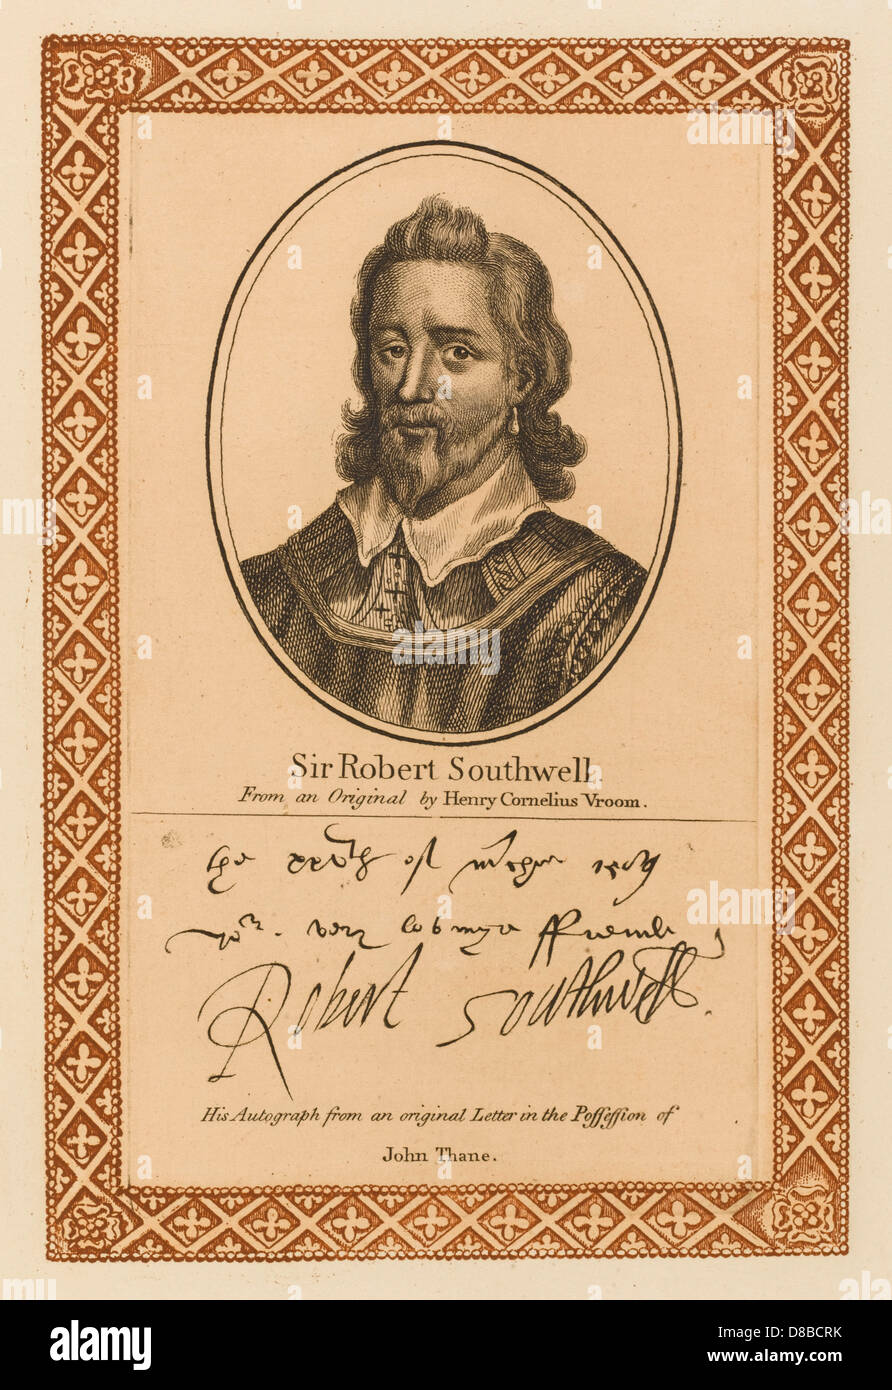 Sir Robert Southwell.
From an Original by Henry Cornelius Vroom.
the of
yor. very lovinge ffreinde
Robert Southwell.
His Autograph from an original Letter in the Poſſeſſion of
John Thane.
alamy
Image ID: D8BCRK
www.alamy.com